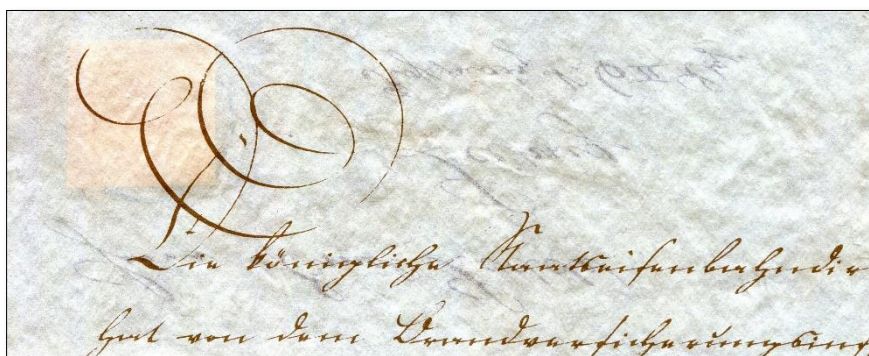 Die königliche Staatseisenbahndir
hat von dem Brandversicherungsins